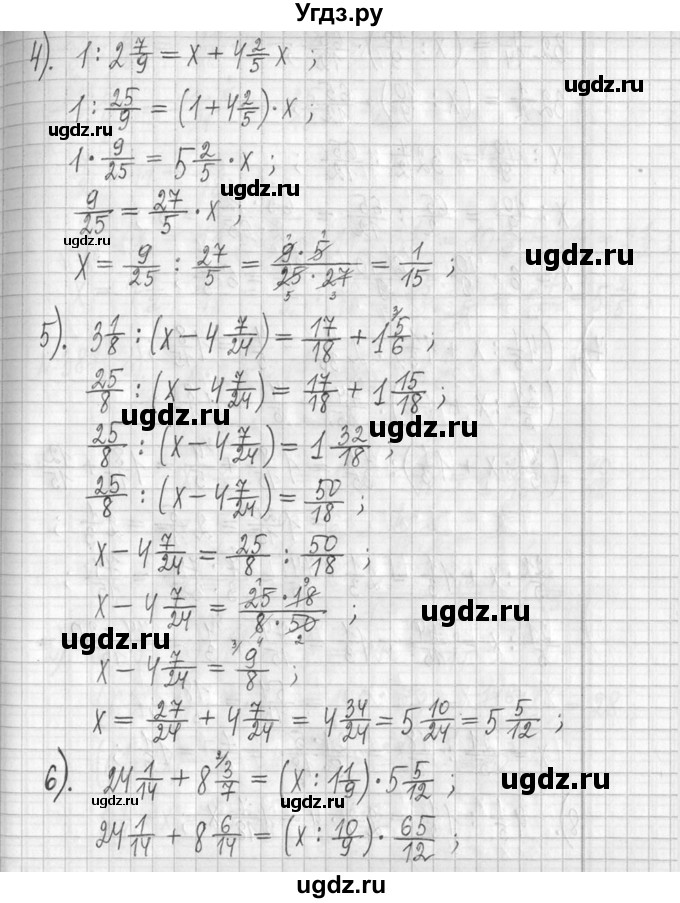 Угдз.ру
4). 1 : 2 7/9 = x + 4 2/5 x ;
1 : 25/9 = (1 + 4 2/5) · x ;
ugdz.ru ugdz.ru
1 · 9/25 = 5 2/5 · x ;
ugdz.ru
9/25 = 27/5 · x ;
ugdz.ru
x = 9/25 : 27/5 = 9·5/25·27 = 1/15 ;
5). 3 1/8 : (x − 4 7/24) = 17/18 + 1 5/6 ;
ugdz.ru
25/8 : (x − 4 7/24) = 17/18 + 1 15/18 ;
ugdz.ru ugdz.ru
25/8 : (x − 4 7/24) = 1 32/18 ;
25/8 : (x − 4 7/24) = 50/18 ;
x − 4 7/24 = 25/8 : 50/18 ;
x − 4 7/24 = 25·18/8·50 ;
ugdz.ru
ugdz.ru
x − 4 7/24 = 9/8 ;
x = 27/24 + 4 7/24 = 4 34/24 = 5 10/24 = 5 5/12 ;
6). 24 1/14 + 8 3/7 = (x : 1 1/9) · 5 5/12 ;
ugdz.ru ugdz.ru ugdz.ru
24 1/14 + 8 6/14 = (x : 10/9) · 65/12 ;
ugdz.ru